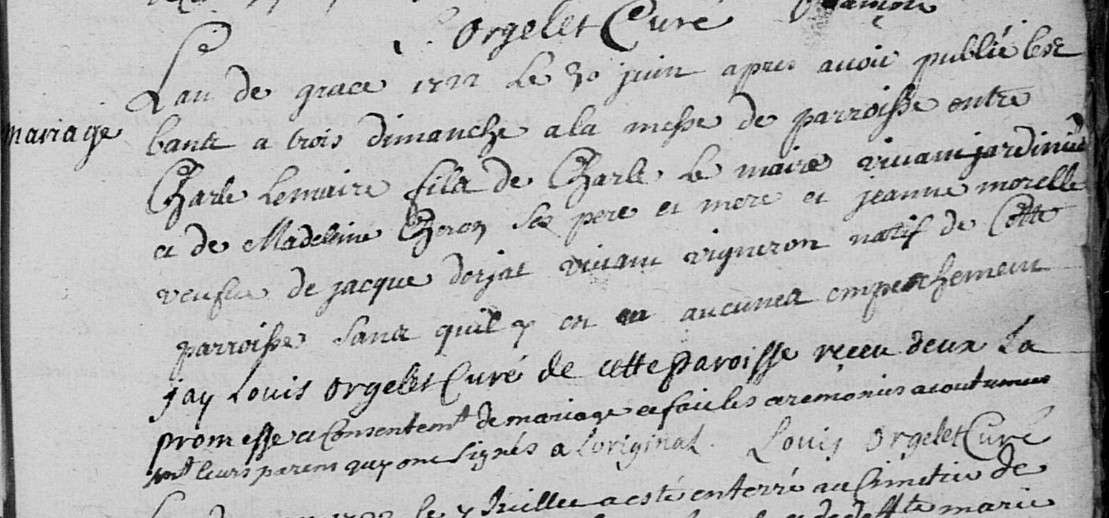 Orgelet Curé
Lan de grace 1722 le 30 juin apres avoir publié les
mariage
bans a trois dimanche a la messe de parroisse entre
Charle Lemaire fils de Charle Le maire vivant jardinier
et de Madeleine Cheron ses pere et mere et jeanne morelle
veufue de jacque dorjat vivant vigneron natif de Cette
parroisse sans quil y en eu aucunes empeschement
jay Louis Orgelet Curé de cette paroisse receu deux la
promesse et Consentemt. de mariage et fait les ceremonies acoutumées
leurs parens quy ont signés a loriginal. Louis Orgelet Curé
le 7 Juillet a esté enterré au Cimetiere de
marie